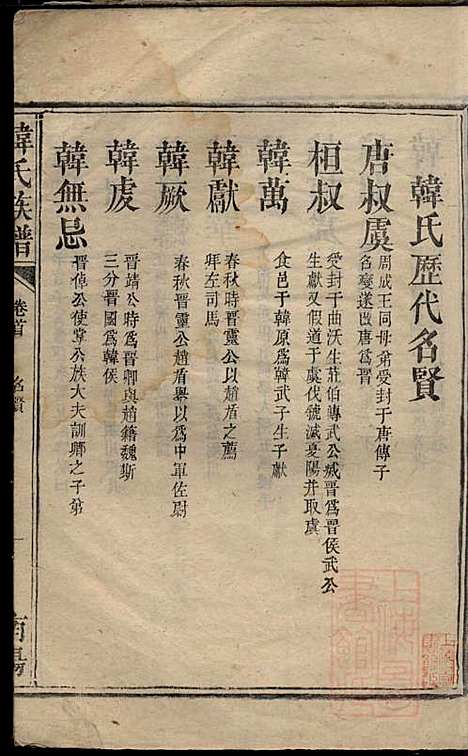 韓氏歷代名賢
唐叔虞
周成王同母弟受封于唐傳子
名燮遂改唐爲晉
桓叔
受封于曲沃生莊伯傳武公滅晉爲晉侯武公
生獻又假道于虞伐虢滅夏陽幷取虞
韓萬
食邑于韓原爲韓武子生子獻
韓獻
春秋時晉靈公以趙盾之薦
拜左司馬
韓厥
春秋晉靈公趙盾舉以爲中軍佐尉
韓虔
晉靖公時爲晉卿與趙籍魏斯
三分晉國爲韓侯
韓無忌
晉悼公使掌公族大夫訓卿之子弟
韓氏族譜
卷首
名賢
一
南陽